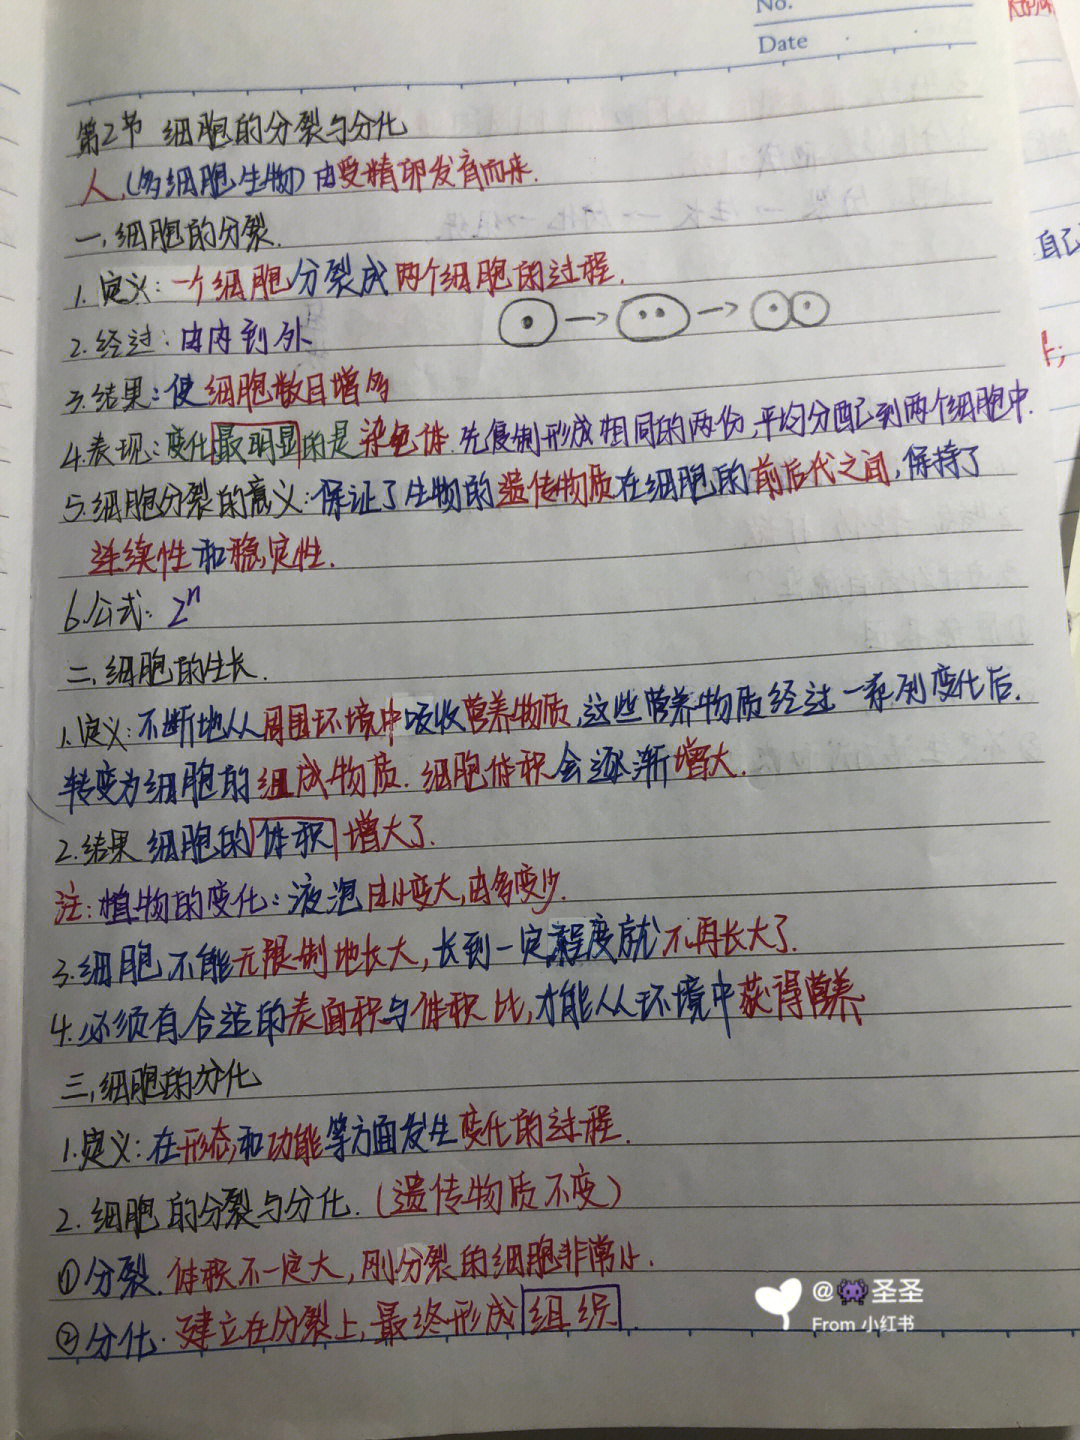 No.
Date
第2节 细胞的分裂与分化
人(多细胞生物)由受精卵发育而来.
一,细胞的分裂.
1.定义:一个细胞分裂成两个细胞的过程.
2.经过:由内到外
3.结果:使细胞数目增多
4.表现:变化最明显的是染色体.先复制形成相同的两份,平均分配到两个细胞中.
5.细胞分裂的意义:保证了生物的遗传物质在细胞的前后代之间,保持了
连续性和稳定性.
6.公式:2ⁿ
二,细胞的生长.
1.定义:不断地从周围环境中吸收营养物质,这些营养物质经过一系列变化后.
转变为细胞的组成物质.细胞体积会逐渐增大.
2.结果 细胞的体积增大了.
注:植物的变化:液泡由小变大,由多变少.
3.细胞不能无限制地长大,长到一定程度就不再长大了.
4.必须有合适的表面积与体积比,才能从环境中获得营养
三,细胞的分化
1.定义:在形态,和功能等方面发生变化的过程.
2.细胞的分裂与分化.(遗传物质不变)
①分裂.体积不一定大,刚分裂的细胞非常小.
②分化.建立在分裂上,最终形成组织.
自己
@👾圣圣
From 小红书